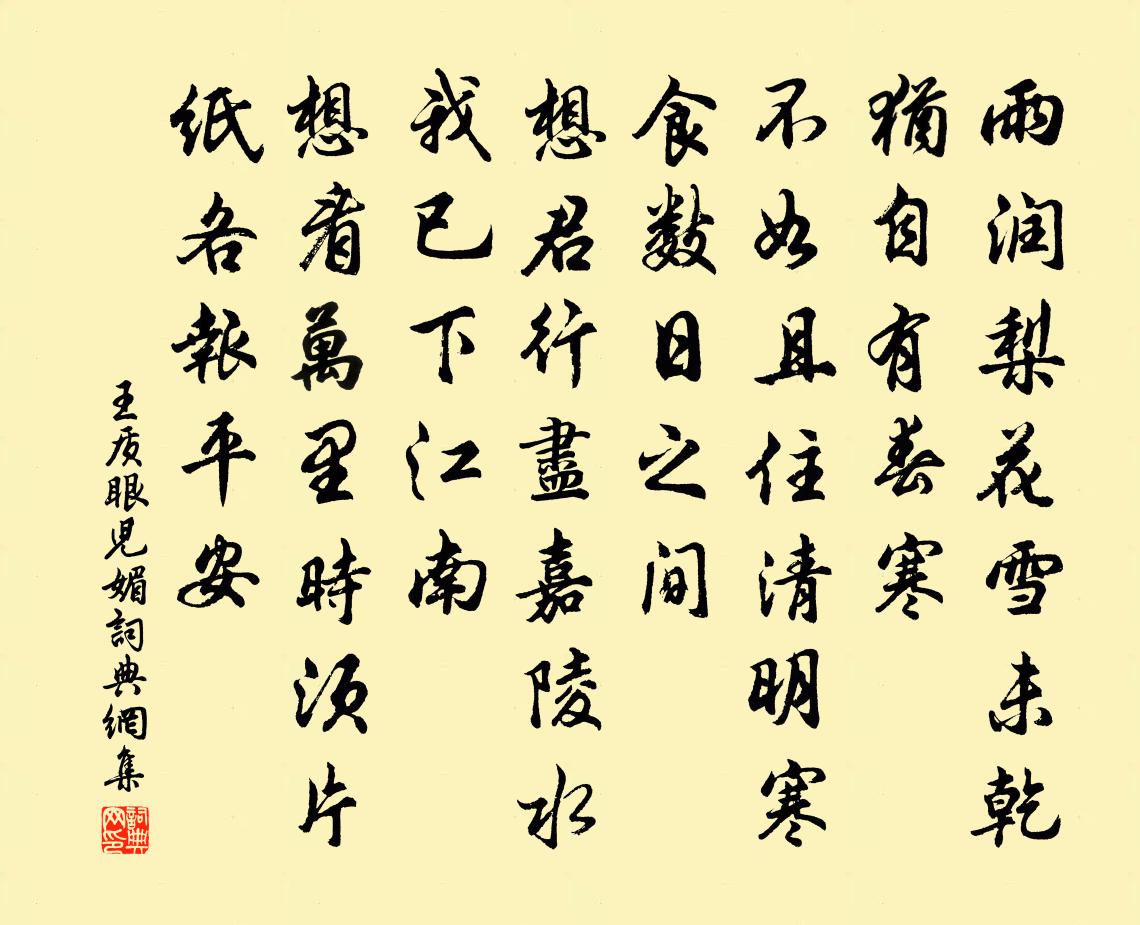 雨润梨花雪未乾
猶自有春寒
不如且住清明寒
食數日之间
想君行盡嘉陵水
我已下江南
想看萬里時須片
纸各報平安
王质眼兒媚詞典網集
詞典网印